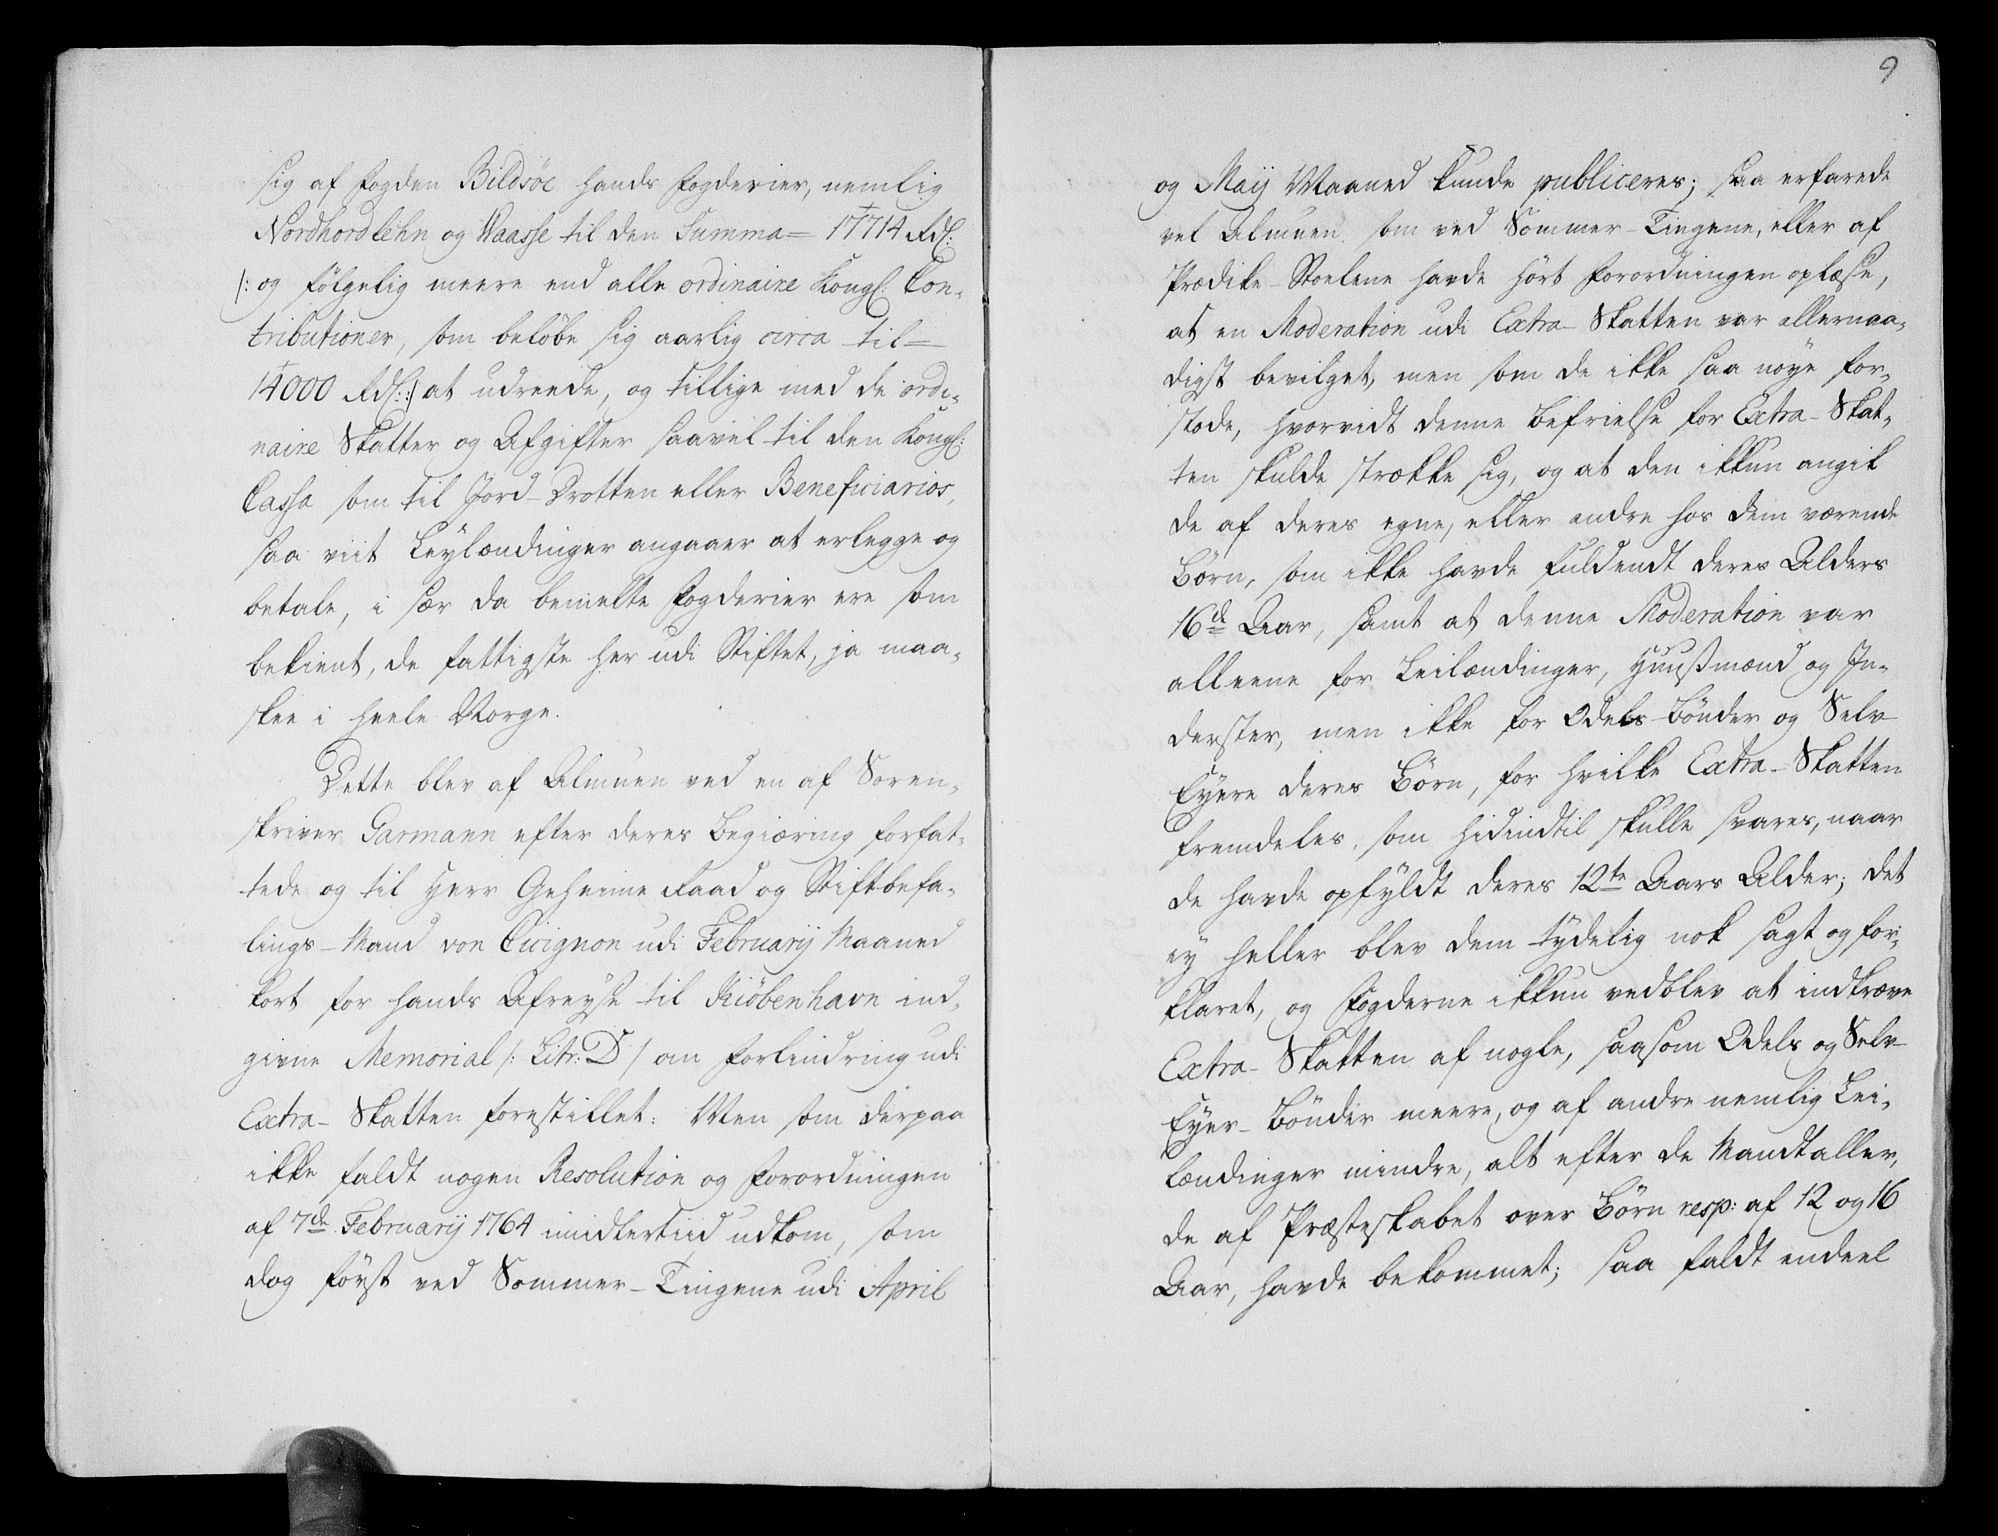 sig af Fogden Bildsöe hands Fogderier, nemlig
Nordhordlehn og Waasse til den Summa = 17714 Rdl:
/: og følgelig meere end alle ordinaire Kongl: Con-
tributioner, som beløbe sig aarlig circa til =
14000 Rdl: :/ at udreede, og tillige med de ordi-
naire Skatter og Afgifter saavel til den Kongl:
Cassa som til Jord-Drotten eller Beneficiarios,
saa viit Leylændinger angaaer at erlegge og
betale, i sær da bemelte Fogderier ere som
bekient, de fattigste her udi Stiftet, ja maa-
skee i heele Norge.
Dette blev af Almuen ved en af Soren-
skriver Garmann efter deres Begiæring forfat-
tede og til Herr Geheime Raad og Stiftbefa-
lings-Mand von Cicignon udi Februarij Maaned
kort for hands Afreyse til Kiöbenhavn ind-
givne Memorial /: Litr: D / om Forlindring udi
Extra-Skatten forestillet: Men som derpaa
ikke faldt nogen Resolution og Forordningen
af 7de Februarij 1764 imidlertiid udkom, som
dog först ved Sommer-Tingene udi April
9
og Maij Maaned kunde publiceres; saa erfarede
vel Almuen som ved Sommer-Tingene, eller af
Prædike-Stoelene havde hört Forordningen oplæse,
at en Moderation udi Extra-Skatten var allernaa-
digst bevilget, men som de ikke saa nöye for-
stode, hvorvidt denne Befrielse for Extra-Skat-
ten skulde strække sig, og at den ikkun angik
de af deres egne, eller andre hos dem værende
Börn, som ikke havde fuldendt deres Alders
16de Aar, samt at denne Moderation var
alleene for Leilændinger, Huusmænd og In-
derster, men ikke for Odels-Bönder og Selv-
Eyere deres Börn, for hvilke Extra-Skatten
fremdeles, som hidindtil skulle svares, naar
de havde opfyldt deres 12te Aars Alder; det
ey heller blev dem tydelig nok sagt og for-
klaret, og Fogderne ikkun vedblev at indkræve
Extra-Skatten af nogle, saasom Odels og Selv-
Eyer-Bönder meere, og af andre nemlig Lei-
lændinger mindre, alt efter de Mandtaller,
de af Præsteskabet over Börn resp: af 12 og 16
Aar, havde bekommet; saa faldt endeel